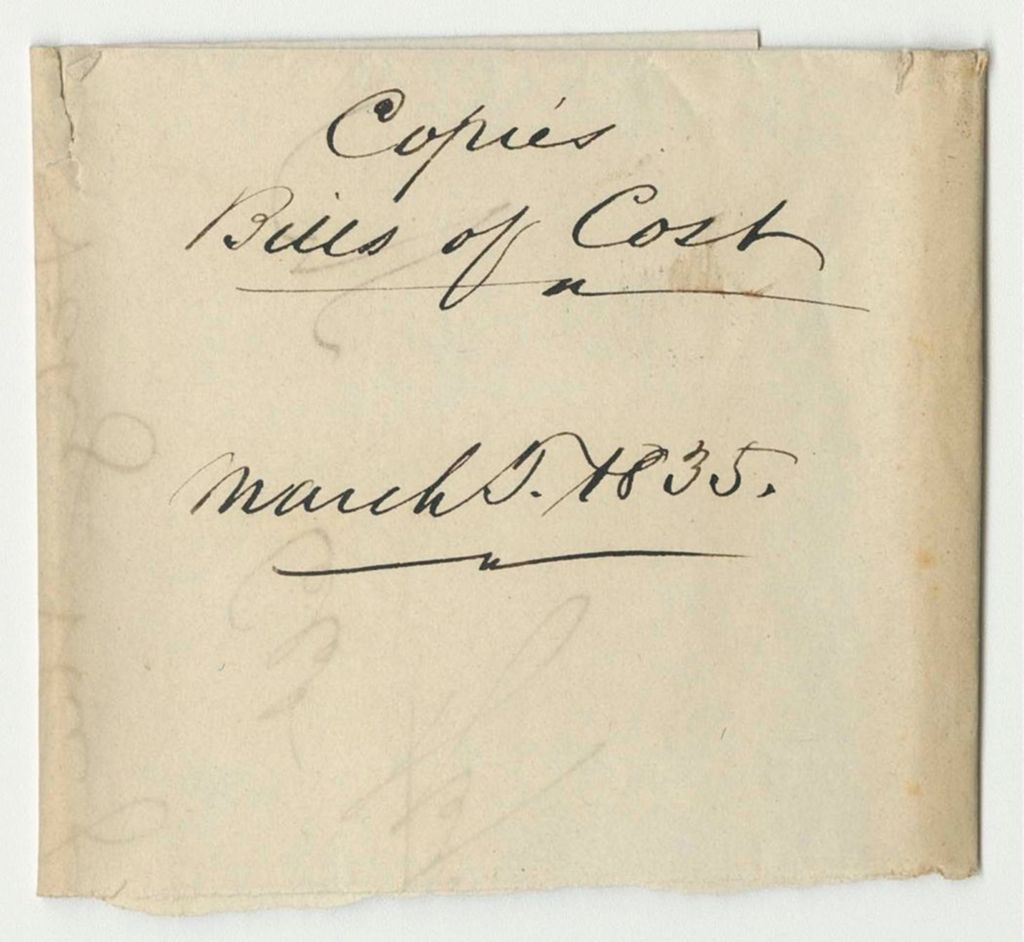 Copies
Bills of Cost
March T. 1835.